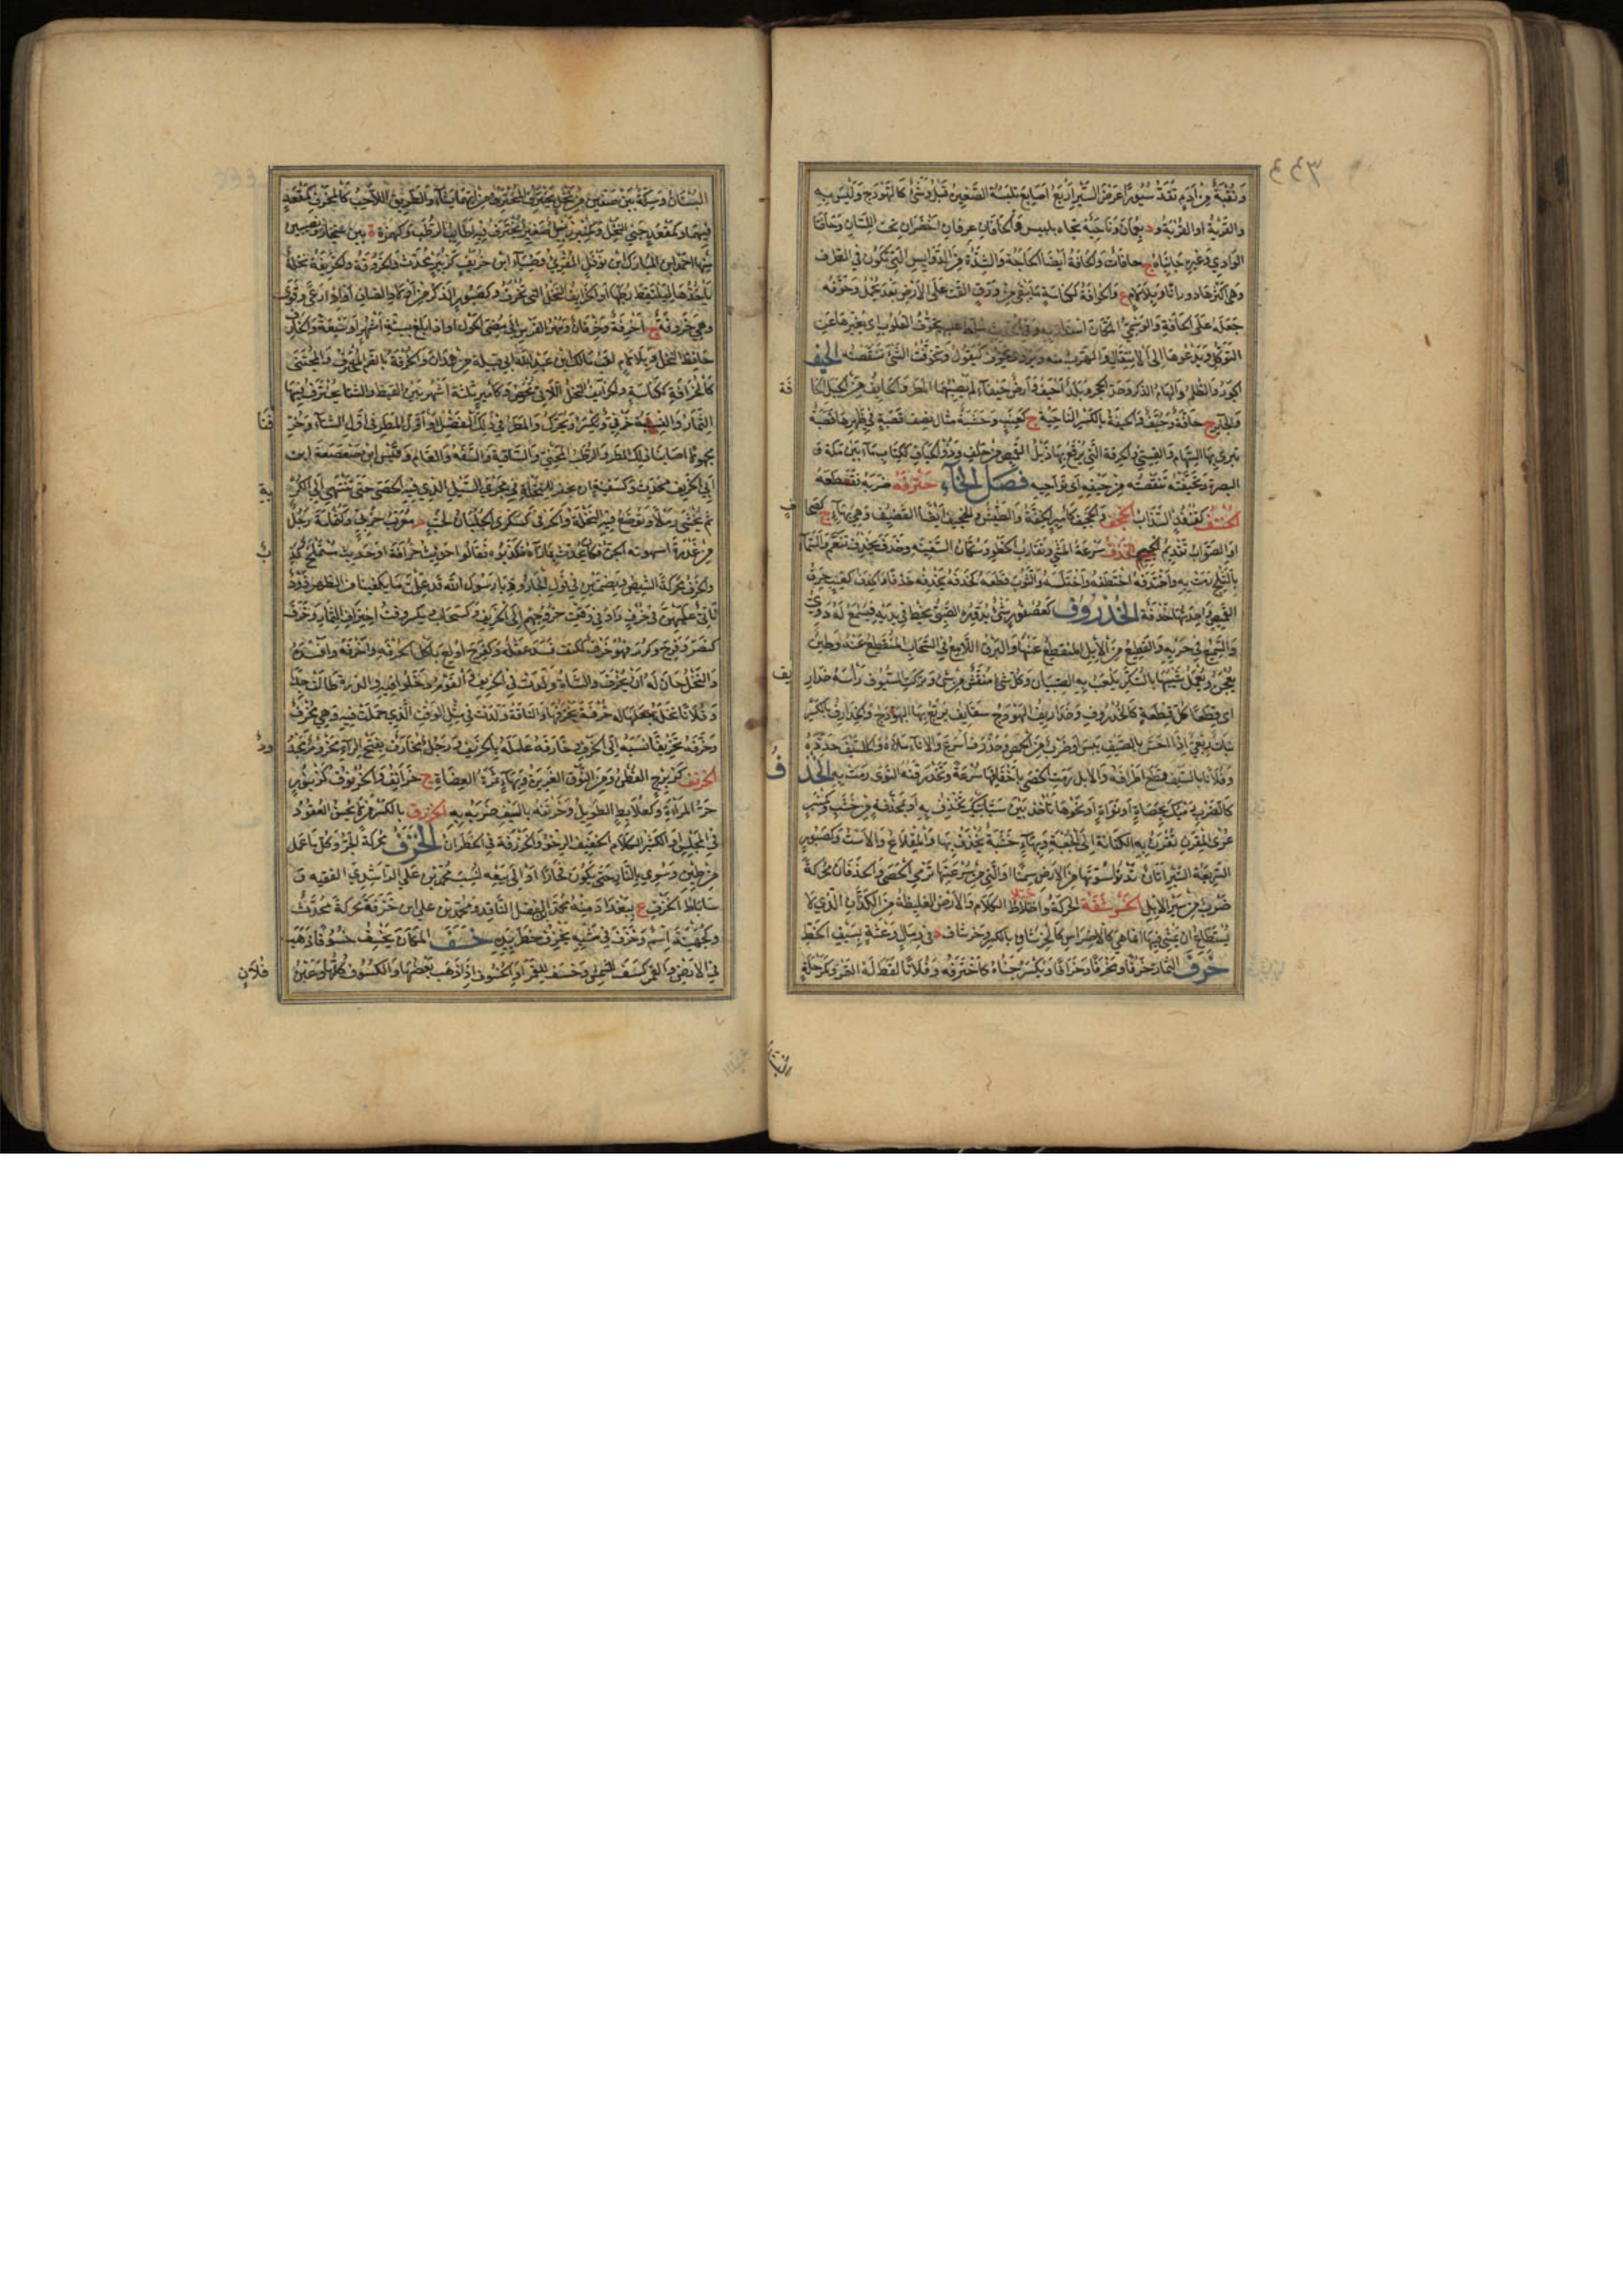 ٣٤٤
وَنُقْبَةٌ مِنْ أَدَمٍ تُقَدُّ سُيُورًا عَرْضُ السَّيْرِ أَرْبَعُ أَصَابِعَ تَلْبَسُهُ الصَّغِيرَةُ قَبْلَ وَشَيْءٌ كَالْهَوْدَجِ وَلَيْسَ بِهِ
وَالقَرْيَةُ أو القِرْبَةُ ود بِعُمَانَ وَنَاحِيَةٌ تجاه بلبيس وَالحَافَانِ عرقان أَخْضَرَانِ تحت اللِّسَانِ وَحَافَتَا
الوَادِي وَغَيْرِهِ جَانِبَاهُ ج حافات وَالحَافَةُ أَيْضًا الحَاجَةُ وَالشِّدَّةُ وَمِنَ الدَّوَايِسِ الَّتِي تَكُونُ فِي الطَّرَف
وَهِيَ أَكْثَرُهَا دورانا وَبِلَا لَامٍ ع وَالحُوَافَةُ كَكُنَاسَةٍ مَا يَبْقَى مِنْ وَرَقِ القَتِّ عَلَى الأَرْضِ بَعْدَ مَا يُحْمَلُ وَحَوَّفَهُ
جَعَلَهُ عَلَى الحَافَةِ وَالوَسْمِيُّ المَكَانَ استدار به وفي الحديث سلط عليهم يُحَوِّفُ القُلُوبَ اي يغيرها عن
التَّوَكُّلِ وَيَدْعُوهَا إِلَى الاِنْتِقَالِ وَالهَرَبِ منه ويروى يحوف كَيَقُولُ وَتَحَوَّفْتُ الشَّيْءَ تَنَقَّصْتُهُ الحَيْفُ
الجَوْرُ وَالظُّلْمُ وَالهَامُ الذكر وحدّ الحجر وَبَلَدٌ أَحْيَفُ وَأَرْضٌ حَيْفَاءُ لَمْ يُصِبْهَا المطر وَالحَائِفُ مِنَ الجَبَلِ الحَا
فَة
وَالجَائِرُ ج حَافَةٌ وَحُيَّفٌ وَالحِيفَةُ بِالكَسْرِ النَّاحِيَةُ ج كَعِنَبٍ وَخَشَبَةٌ مثال نصف قَصَبَةٍ فِي ظَهْرِهَا قَصَبَةٌ
تبرى بِهَا السِّهَامُ وَالقِسِيُّ وَالخِرْقَةُ الَّتِي يُرْقَعُ بِهَا ذَيْلُ القَمِيصِ مِنْ خَلْفٍ وَذُو الحِيَافِ كَكِتَابٍ مَاءٌ بَيْنَ مَكَّةَ وَ
البصرة وَتَحَيَّفْتُهُ تَنَقَّصْتُهُ مِنْ حِيَفِهِ أَيْ نَوَاحِيهِ فَصْلُ الخَاءِ خَتْرَفَهُ ضَرَبَهُ فَقَطَعَهُ
الخُتْفُ كَقُنْفُذٍ السَّذَابُ الخَجْفُ وَالخَجِيفُ كَأَمِيرٍ الخِفَّةُ وَالطَّيْشُ وَالخَجِيفُ أَيْضًا القَضِيفُ وَهِيَ بِهَاءٍ ج كَصِحَا
فٍ
أو الصَّوَابُ تَقْدِيمُ الجِيمِ الخَدْفُ سُرْعَةُ المَشْيِ وَتَقَارُبُ الخَطْوِ وَسُكَّانُ السَّفِينَةِ وَخَدَفَ يَخْدِفُ تَنَعَّمَ وَالسَّمَاءُ
بِالثَّلْجِ رَمَتْ بِهِ وَاخْتَدَفَهُ اخْتَطَفَهُ وَاخْتَلَسَهُ وَالثَّوْبَ قَطَعَهُ كَخَدَفَهُ يَخْدِفُهُ خَدْفًا وَالخِدَفُ كَعِنَبٍ خِرَقُ
القَمِيصِ وَاحِدَتُهَا خِدْفَةٌ الخُذْرُوفُ كَعُصْفُورٍ شَيْءٌ يُدَوِّرُهُ الصَّبِيُّ بِخَيْطٍ فِي يَدَيْهِ فَيُسْمَعُ لَهُ دَوِيٌّ
وَالسَّرِيعُ فِي جَرْيِهِ وَالقَطِيعُ مِنَ الإِبِلِ المُنْقَطِعُ عَنْهَا وَالبَرْقُ اللَّامِعُ فِي السَّحَابِ المُنْقَطِعُ عَنْهُ وَطِينٌ
يُعْجَنُ وَيُعْمَلُ شَبِيهًا بِالسُّكَّرِ يَلْعَبُ بِهِ الصِّبْيَانُ وَكُلُّ شَيْءٍ مُنْتَشِرٌ مِنْ شَيْءٍ وَتَرَكَتِ السُّيُوفُ رَأْسَهُ خَذَارِ
يف
اي قِطَعًا كُلُّ قِطْعَةٍ كَالخُذْرُوفِ وَخَذَارِيفُ الهَوْدَجِ سَقَائِفُ يُرَبَّعُ بِهَا الهَوْدَجُ وَالخِذْرَافُ بِالكَسْرِ
نَبَاتٌ رِبْعِيٌّ إِذَا أَحَسَّ بِالصَّيْفِ يَبِسَ أَوْ ضَرْبٌ مِنَ الحَمْضِ وَخَذْرَفَ أَسْرَعَ وَالإِنَاءَ مَلَأَهُ وَالسَّيْفَ حَدَّدَهُ
وَفُلَانًا بِالسَّيْفِ قَطَعَ أَطْرَافَهُ وَالإِبِلُ رَمَتِ الحَصَى بِأَخْفَافِهَا سُرْعَةً وَتَخَذْرَفَتْهُ النَّوَى رَمَتْ بِهِ الخَذْ
فُ
كَالضَّرْبِ رَمْيُكَ بِحَصَاةٍ أَوْ نَوَاةٍ أَوْ نَحْوِهَا تَأْخُذُ بَيْنَ سَبَّابَتَيْكَ تَخْذِفُ بِهِ أَوْ بِمِخْذَفَةٍ مِنْ خَشَبٍ وَكَمِنْبَرٍ
عُرَى المِقْرَنِ تُقْرَنُ بِهِ الكِنَانَةُ إِلَى الجَعْبَةِ وَبِهَاءٍ خَشَبَةٌ يُخْذَفُ بِهَا وَالمِقْلَاعُ وَالاسْتُ وَكَصَبُورٍ
السَّرِيعَةُ السَّيْرِ وَأَتَانٌ تَدْنُو سُرَّتُهَا مِنَ الأَرْضِ سِمَنًا وَالَّتِي مِنْ سُرْعَتِهَا تَرْمِي الحَصَى وَالخَذَفَانُ مُحَرَّكَةً
ضَرْبٌ مِنْ سَيْرِ الإِبِلِ الخَرْشَفَةُ الحَرَكَةُ وَاخْتِلَاطُ الكَلَامِ وَالأَرْضُ الغَلِيظَةُ مِنَ الكَذَّانِ الَّذِي لَا
يُسْتَطَاعُ ان يُمْشَى فِيهَا إنما هي كَالأَضْرَاسِ كَالخِرْشَافِ بِالكَسْرِ وَخِرْشَاف د في رِمَالٍ وَعْثَةٍ بِسِيفِ الخَطِّ
خَرَفَ الثِّمَارَ خَرْفًا وَمَخْرَفًا وَخَرَافًا وَيُكْسَرُ جَنَاهُ كَاخْتَرَفَهُ وَفُلَانًا لَقَطَ لَهُ التَّمْرَ وَكَمَرْحَلَةٍ
البستان
البُسْتَانُ وَسِكَّةٌ بَيْنَ صَفَّيْنِ مِنْ نَخْلٍ يَخْتَرِفُ المُخْتَرِفُ مِنْ أَيِّهِمَا شَاءَ وَالطَّرِيقُ اللَّاحِبُ كَالمَخْرَفِ كَمَقْعَدٍ
فِيهِمَا وَكَمَقْعَدٍ جَنَى النَّخْلِ وَكَمِنْبَرٍ زِنْبِيلٌ صَغِيرٌ يُخْتَرَفُ فِيهِ أَطَايِبُ الرُّطَبِ وَكَهُمَزَةٍ ة بين سنجار ونصيبين
مِنْهَا احمد ابن المُبَارَكِ ابن نَوْفَلٍ المُقْرِئُ وَضِيَاءُ ابن خُرَيْفٍ كَزُبَيْرٍ مُحَدِّثٌ وَالخَرُوفَةُ وَالخَرِيفَةُ نَخْلَةٌ
يَأْخُذُهَا لِيَلْتَقِطَ رُطَبَهَا أو الخَرَائِفُ النَّخْلُ الَّتِي تُخْرَصُ وَكَصَبُورٍ الذَّكَرُ مِنْ أَوْلَادِ الضَّأْنِ أَوْ إِذَا رَعَى وَقَوِيَ
وَهِيَ خَرُوفَةٌ ج أَخْرِفَةٌ وَخِرْفَانٌ وَمُهْرُ الفَرَسِ إِلَى مُضِيِّ الحَوْلِ أو اذا بَلَغَ سِتَّةَ أَشْهُرٍ أَوْ سَبْعَةً وَالخَارِفُ
حَافِظُ النَّخْلِ وَبِلَا لَامٍ لقب مَالِكِ ابْنِ عَبْدِ اللّٰهِ أبي قبيلة مِنْ هَمْدَانَ وَالخُرْفَةُ بِالضَّمِّ المُخْتَرَفُ وَالمُجْتَنَى
كَالخُرَافَةِ كَكُنَاسَةٍ وَالخَرَائِفُ النَّخْلُ اللَّاتِي تُخْرَصُ وَكَأَمِيرٍ ثَلَثَةُ أَشْهُرٍ بَيْنَ القَيْظِ وَالشِّتَاءِ تُخْتَرَفُ فِيهَا
الثِّمَارُ وَالنِّسْبَةُ خَرْفِيٌّ وَيُكْسَرُ وَيُحَرَّكُ وَالمَطَرُ فِي ذٰلِكَ الفَصْلِ أَوْ أَوَّلُ المَطَرِ فِي أَوَّلِ الشِّتَاءِ وَخُرِّ
فْنَا
مجهولا أَصَابَنَا ذلِكَ المطر وَالرُّطَبُ المَجْنِيُّ وَالسَّاقِيَةُ وَالسَّنَةُ وَالعَامُ وَقَيْسُ ابن صَعْصَعَةَ ابن
أَبِي الخَرِيفِ مُحَدِّثٌ وَكَسَفِينَةٍ ان يحفر للنَّخْلَةِ فِي مَجْرَى السَّيْلِ الَّذِي فِيهِ الحَصَى حَتَّى يُنْتَهَى إِلَى الكُدْ
يةِ
ثُمَّ يُحْشَى رَمْلًا وَتُوضَعُ فِيهِ النَّخْلَةُ وَالخَرْفَى كَسَكْرَى الجُلُبَّانُ لِحَبٍّ م مُعَرَّبُ خَرْبَى وَكَثُمَامَةٍ رَجُلٌ
مِنْ عُذْرَةَ استهوته الجِنُّ فَكَانَ يُحَدِّثُ بِمَا رَآهُ فَكَذَّبُوهُ فَقَالُوا حَدِيثُ خُرَافَةَ أَوْ حَدِيثٌ مُسْتَمْلَحٌ كَذِ
بٌ
والخَرَفُ مُحَرَّكَةً الشِّيصُ وَبِضَمَّتَيْنِ فِي قَوْلِ الجَارُودِ يَا رَسُولَ اللّٰهِ قَدْ عَلِمْتَ مَا يَكْفِينَا مِنَ الظَّهْرِ ذَوْدٌ
نَأْتِي عَلَيْهِنَّ فِي خُرُفٍ أَرَادَ فِي وَقْتِ خُرُوجِهِمْ إِلَى الخَرِيفِ وَكَسَحَابٍ ويكسر وَقْتُ اخْتِرَافِ الثِّمَارِ وَخَرِفَ
كَنَصَرَ وَفَرِحَ وَكَرُمَ فَهُوَ خَرِفٌ كَكَتِفٍ فَسَدَ عَقْلُهُ وَكَفَرِحَ أُولِعَ بِأَكْلِ الخُرْفَةِ وَأَخْرَفَهُ أَفْسَدَهُ
وَالنَّخْلُ حَانَ لَهُ أَنْ يُخْرَفَ وَالشَّاةُ وَلَدَتْ فِي الخَرِيفِ وَالقَوْمُ دَخَلُوا فِيهِ وَالذُّرَةُ طَالَتْ جِدًّا
وَفُلَانًا نَخْلَةً جَعَلَهَا له خُرْفَةً يَخْتَرِفُهَا وَالنَّاقَةُ وَلَدَتْ فِي مِثْلِ الوَقْتِ الَّذِي حَمَلَتْ فِيهِ وَهِيَ مُخْرِفٌ
وَخَرَّفَهُ تَخْرِيفًا نَسَبَهُ إِلَى الخَرَفِ وخَارَفَهُ عَامَلَهُ بِالخَرِيفِ وَرَجُلٌ مُخَارَفٌ بِفَتْحِ الرَّاءِ مَحْرُومٌ مَحْدُ
ودٌ
الخِرْنِفُ كَزِبْرِجٍ القُطْنُ وَمِنَ النُّوقِ الغَزِيرَةُ وَبِهَاءٍ ثَمَرَةُ العِضَاهِ ج خَرَانِفُ وَالخُرْنُوفُ كَزُنْبُورٍ
حِرُّ المَرْأَةِ وَكَعُلَابِطٍ الطَّوِيلُ وَخَرْنَفَهُ بِالسَّيْفِ ضَرَبَهُ بِهِ الخِزْرَاف بالكَسْرِ مَنْ لَا يُحْسِنُ القُعُودَ
فِي المَجْلِسِ أَوِ الكَثِيرُ الكَلَامِ الخَفِيفُ الرِّخْوُ وَالخَزْرَفَةُ فِي الخَطَرَانُ الخَزَفُ مُحَرَّكَةً الجَرُّ وَكُلُّ مَا عُمِلَ
مِنْ طِينٍ وَشُوِيَ بِالنَّارِ حَتَّى يَكُونَ فَخَّارًا وَإِلَى بَيْعِهِ نُسِبَ مُحَمَّدُ بْنُ عَلِيٍّ الرَّاشِدِيُّ الفقيه وَ
سَابَاطُ الخَزَفِ ع بِبَغْدَادَ مِنْهُ مُحَمَّدُ بْنُ الفَضْلِ النَّاقِدُ وَمُحَمَّدُ بْنُ عَلِيِّ ابْنِ خَزَفَةَ مُحَرَّكَةً مُحَدِّثٌ
وَكَجُهَيْنَةَ اسْمٌ وَخَزَفَ فِي مَشْيِهِ يَخْزِفُ خَطَرَ بِيَدِهِ خَسَفَ المَكَانُ يَخْسِفُ خُسُوفًا ذَهَبَ
فِي الأَرْضِ وَالقَمَرُ كَسَفَ أو كَسَفَ لِلشَّمْسِ وَخَسَفَ لِلْقَمَرِ أَوِ الخُسُوفُ إِذَا ذَهَبَ بَعْضُهَا وَالكُسُوفُ كُلُّهَا وَعَيْنَ
فُلَانٍ